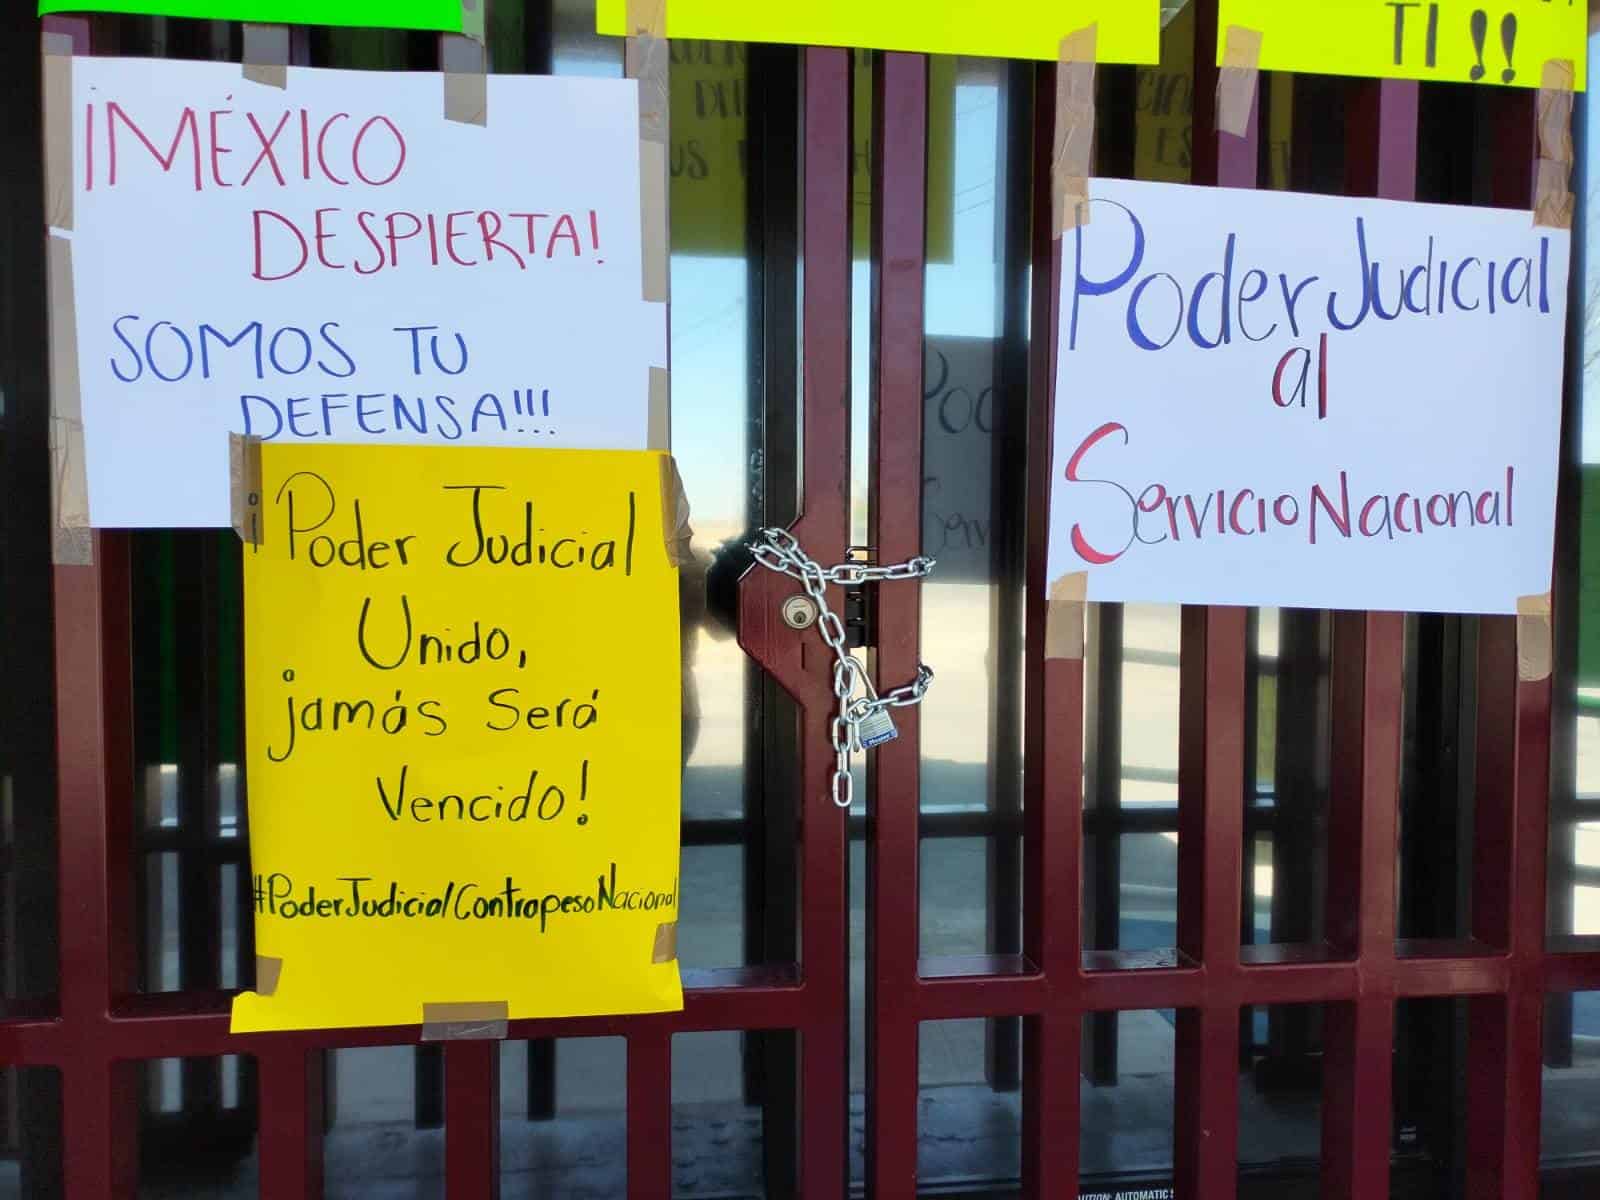 TI !!
¡MÉXICO
DESPIERTA!
SOMOS TU
DEFENSA!!!
¡Poder Judicial
Unido,
jamás Será
Vencido!
#PoderJudicialContrapesoNacional
Poder Judicial
al
Servicio Nacional
Master
AUTOMATIC